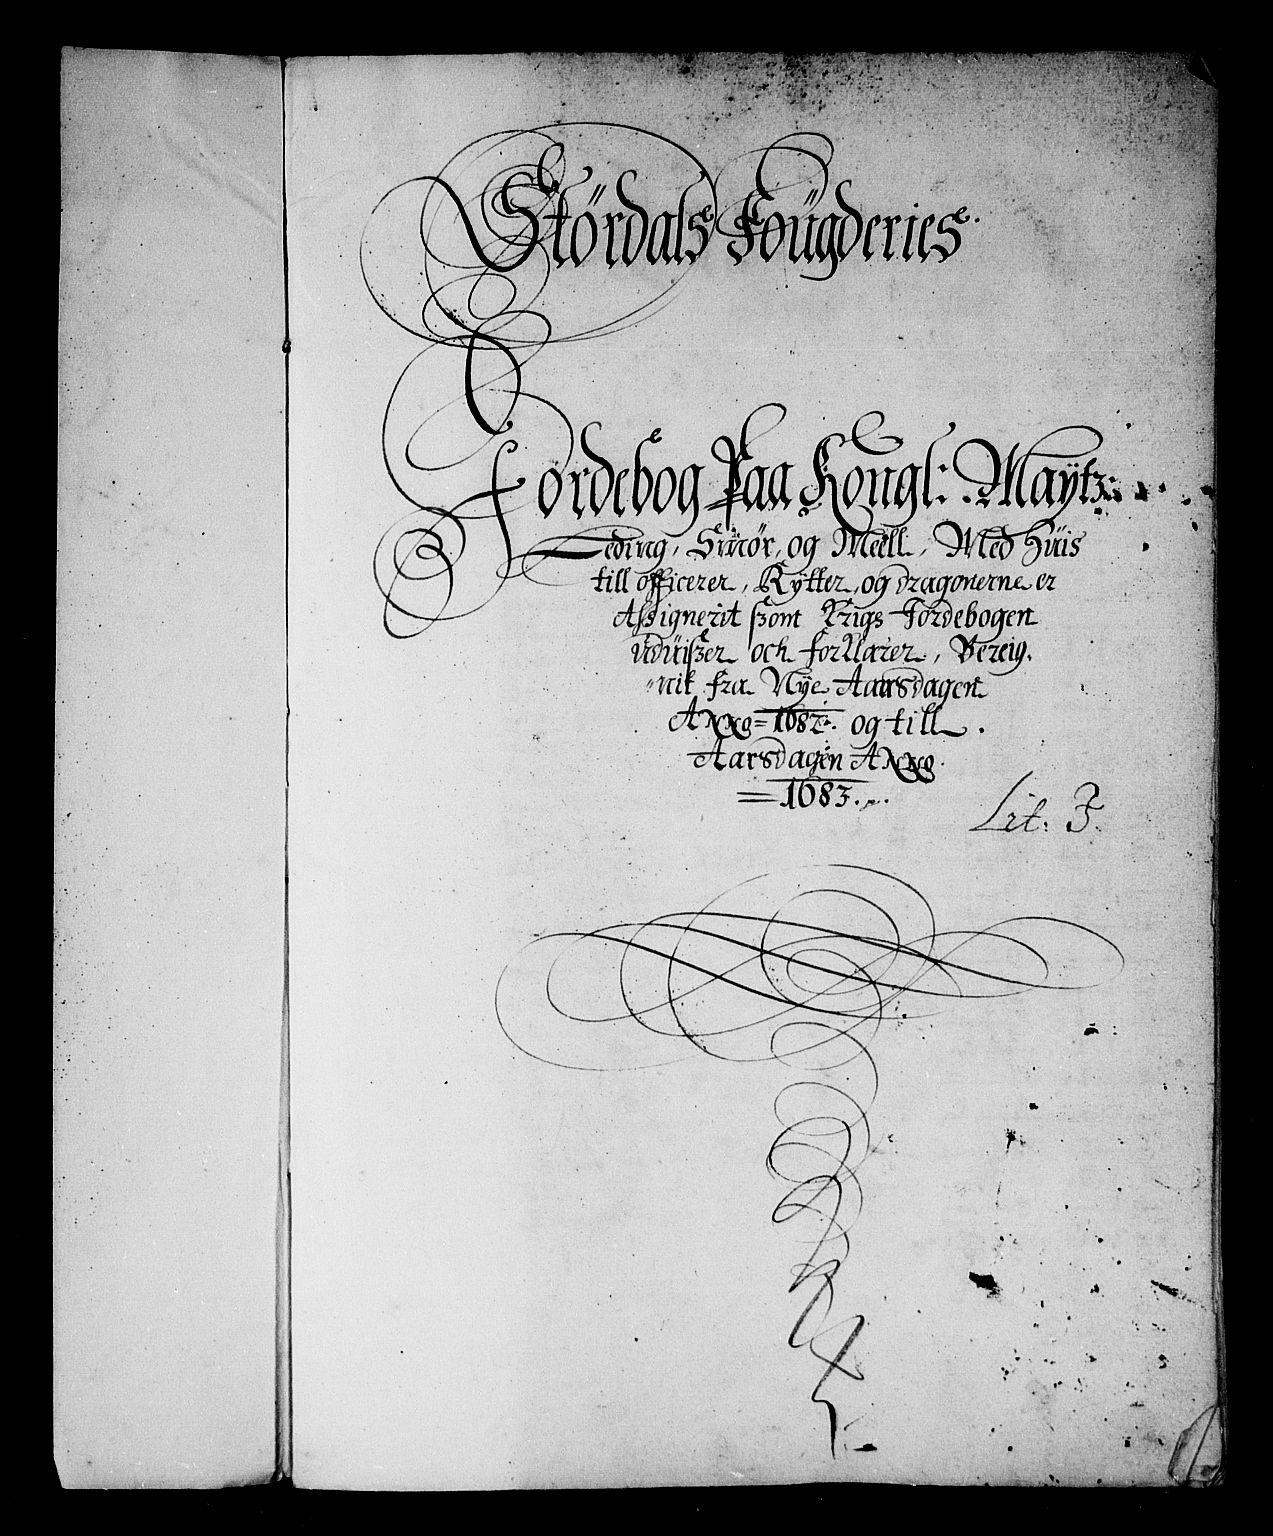 Stördals Foügderies.
Jordebog Paa Kongl: Maÿtz:
Leding, Smör, og Meell, Med Hüis
till officerer, Rÿtter, og dragonerne er
Assignerit szom Krigs Jordebogen
üdüiszer och forklarer, Bereig.
nit fra Nÿe Aarsdagen
Anno = 1682. og till
Aarsdagen Anno
= 1683.
Lit: F.